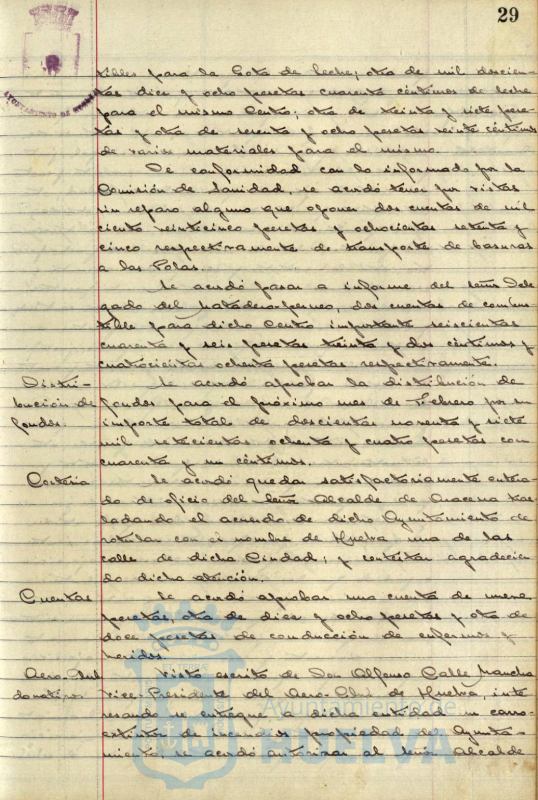 29
AYUNTAMIENTO DE HUELVA
tibles para la Gota de leche; otra de mil doscien-
tas diez y ocho pesetas cuarenta céntimos de leche
para el mismo Centro; otra de treinta y siete pese-
tas y otra de sesenta y ocho pesetas veinte céntimos
de varios materiales para el mismo.
De conformidad con lo informado por la
Comisión de Sanidad, se acordó tener por vistas
sin reparo alguno que oponer dos cuentas de mil
ciento veinticinco pesetas y ochocientas setenta y
cinco respectivamente de transporte de basuras
a las Polas.
Se acordó pasar a informe del señor Dele-
gado del Matadero-perneo, dos cuentas de combus-
tible para dicho Centro importante seiscientas
cuarenta y seis pesetas treinta y dos céntimos y
cuatrocientas ochenta pesetas respectivamente.
Distri-
bución de
fondos.
Se acordó aprobar la distribución de
fondos para el próximo mes de Febrero por un
importe total de doscientas noventa y siete
mil setecientas ochenta y cuatro pesetas con
cuarenta y un céntimos.
Cortesía
Se acordó quedar satisfactoriamente entera-
do de oficio del Señor Alcalde de Aracena tras-
ladando el acuerdo de dicho Ayuntamiento de
rotular con el nombre de Huelva una de las
calles de dicha Ciudad; y contestar agradecien-
do dicha atención.
Cuentas
Se acordó aprobar una cuenta de nueve
pesetas, otra de diez y ocho pesetas y otra de
doce pesetas de conducción de enfermos y
heridos.
Aero-Club
donativo.
Visto escrito de Don Alfonso Calle Mancha
Vice-Presidente del Aero-Club de Huelva, inte-
resando se entregue a dicha entidad un carro-
extintor de incendios propiedad del Ayunta-
miento, se acordó autorizar al señor Alcalde
Ayuntamiento de
HUELVA